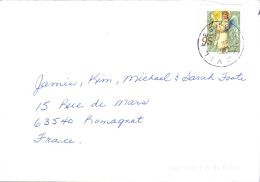 Jamie, Kim, Michael & Sarah Foote
15 Rue de Mars
63540 Romagnat
France.